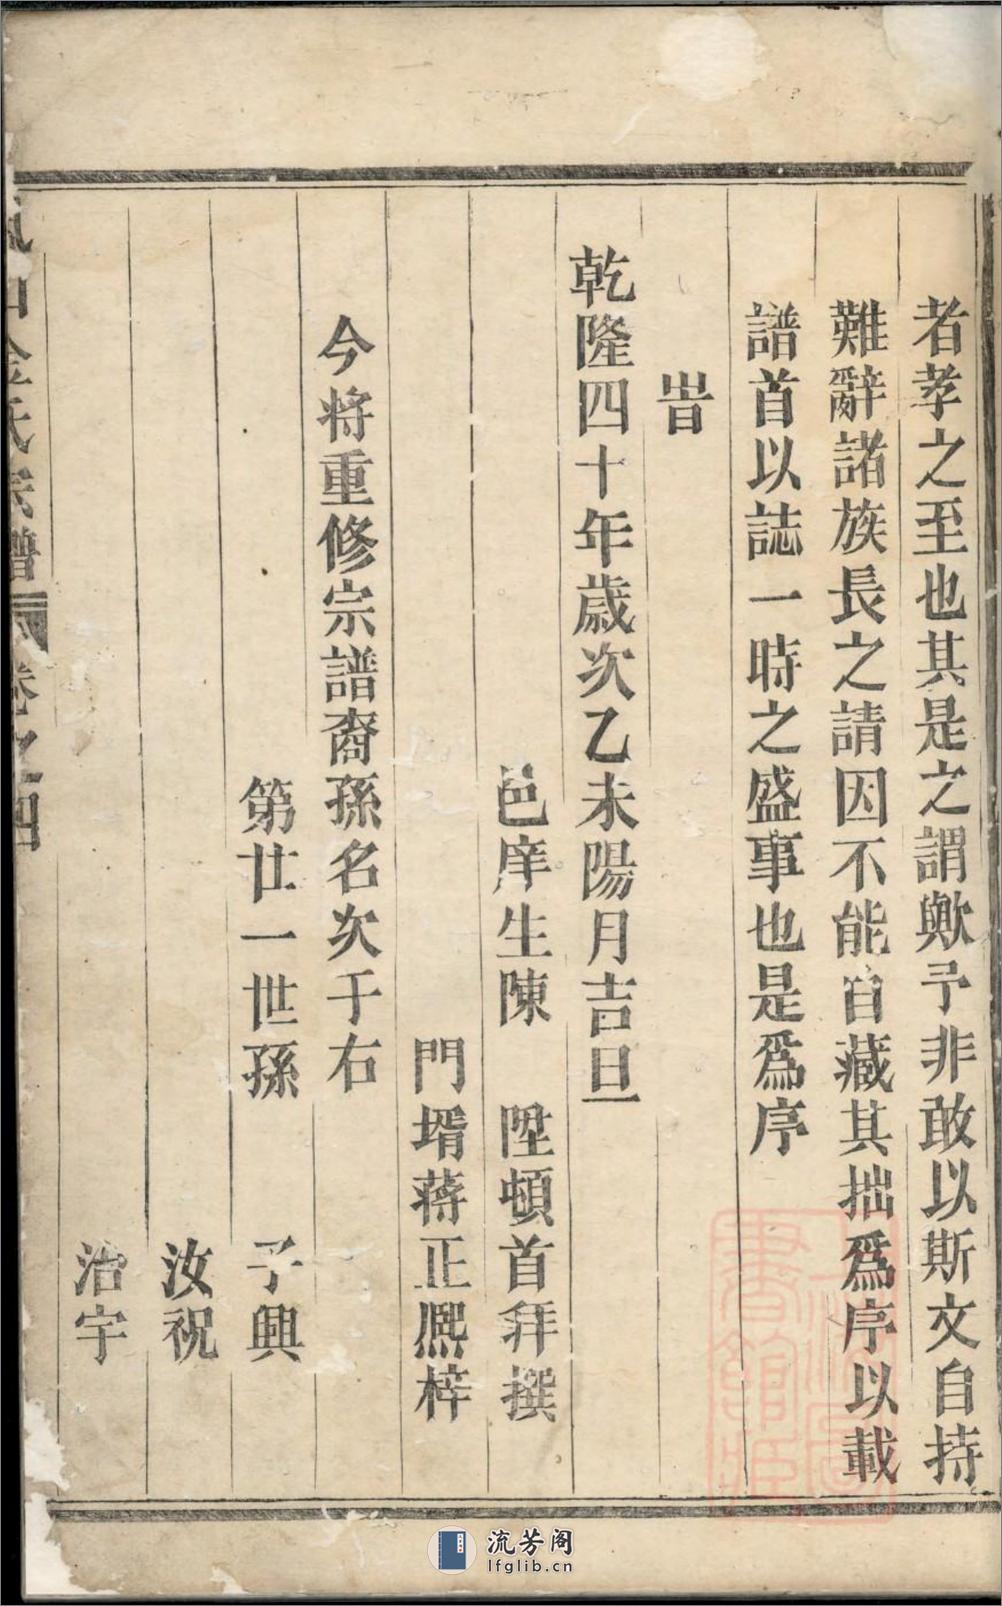 者孝之至也其是之謂歟予非敢以斯文自持
難辭諸族長之請因不能自藏其拙爲序以載
譜首以誌一時之盛事也是爲序
旹
乾隆四十年歲次乙未陽月吉旦
邑庠生陳 陞頓首拜撰
門壻蔣正熈梓
今將重修宗譜裔孫名次于右
第廿一世孫 子興
汝祝
治宇
山金氏宗譜 卷之四
流芳阁
lfglib.cn